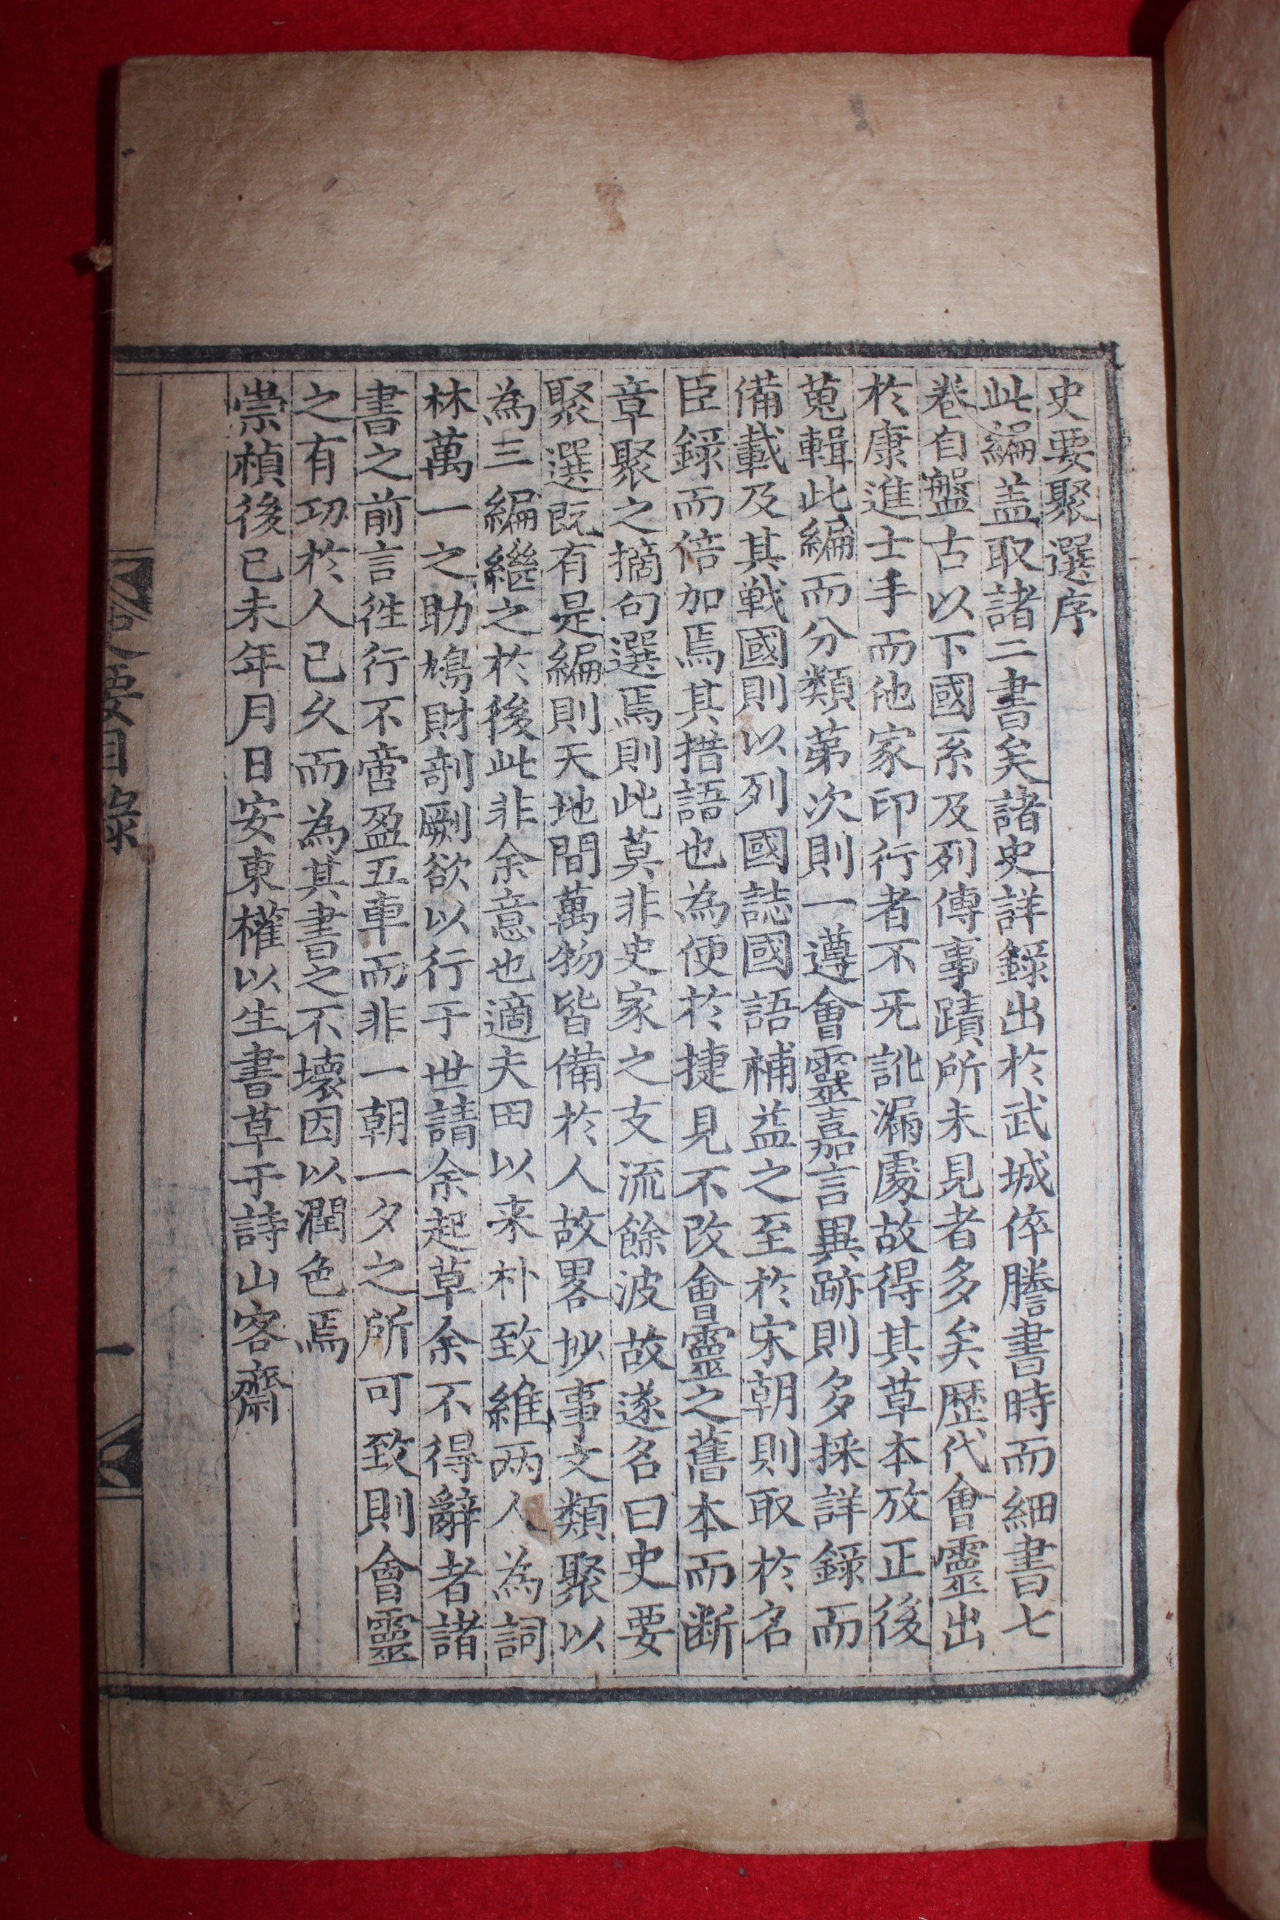 史要聚選序
此編盖取諸二書矣諸史詳錄出於武城倅謄書時而細書七
卷自盤古以下國系及列傳事蹟所未見者多矣歷代會靈出
於康進士手而他家印行者不旡訛漏處故得其草本攷正後
蒐輯此編而分類第次則一遵會靈嘉言異跡則多採詳錄而
備載及其戰國則以列國誌國語補益之至於宋朝則取於名
臣錄而倍加焉其措語也為便於捷見不改會靈之舊本而断
章聚之摘句選焉則此莫非史家之支流餘波故遂名曰史要
聚選旣有是編則天地間萬物皆備於人故畧抄事文類聚以
為三編繼之於後此非余意也適夫田以来朴致維两人為詞
林萬一之助鳩財剞劂欲以行于世請余起草余不得辭者諸
書之前言徃行不啻盈五車而非一朝一夕之所可致則會靈
之有功於人已久而為其書之不壞因以潤色焉
崇楨後己未年月日安東權以生書草于詩山客齋
史要目錄
一